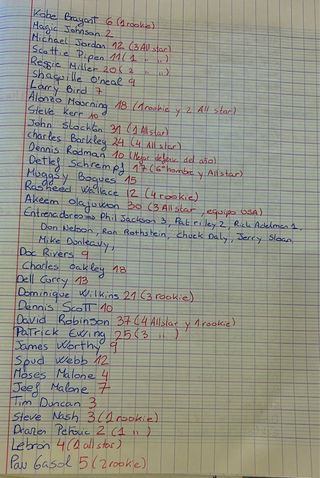 Kobe Brayant 6 (1 rookie)
Magic Johnson 2
Michael Jordan 12 (3 All star)
Scottie Pipen 11 (1 " ")
Reggie Miller 20 (2 " ")
Shaquille O'neal 9
Larry Bird 7
Alonzo Mourning 18 (1 rookie y 2 All star)
Steve Kerr 10
John Stockton 31 (1 All star)
Charles Barkley 24 (4 All star)
Dennis Rodman 10 (Mejor defensor del año)
Detlef Schrempf 17 (6º hombre y All star)
Muggsy Bogues 15
Rasheed Wallace 12 (4 rookie)
Akeem Olajuwon 30 (3 All star, equipo USA)
Entrenadores Phil Jackson 3, Pat riley 2, Rick Adelman 1,
Don Nelson, Ron Rothstein, Chuck Daly, Jerry Sloan,
Mike Dunleavy,
Doc Rivers 9
Charles Oakley 18
Dell Corry 13
Dominique Wilkins 21 (3 rookie)
Dennis Scott 10
David Robinson 37 (4 All star y 1 rookie)
Patrick Ewing 25 (3 " )
James Worthy 9
Spud Webb 12
Moses Malone 4
Jeef Malone 7
Tim Duncan 3
Steve Nash 3 (1 rookie)
Drazen Petrovic 2 (1 ")
Lebron 4 (1 all star)
Pau Gasol 5 (2 rookie)